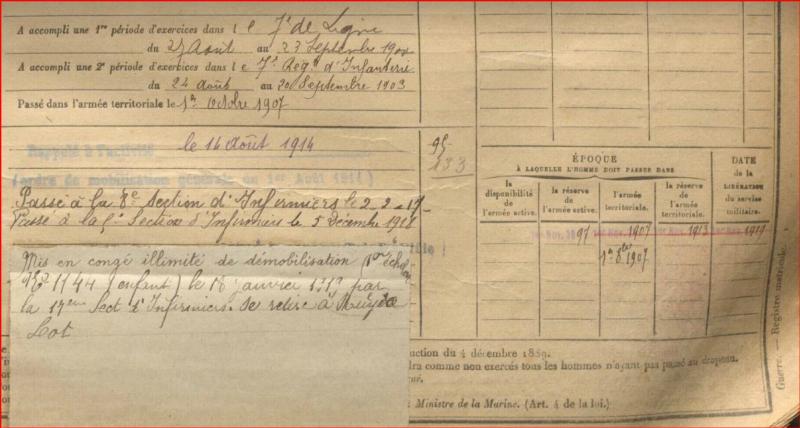 A accompli une 1re période d'exercices dans l e 7e de Ligne
du 27 Août au 23 Septembre 190
A accompli une 2e période d'exercices dans l e 7e Régt d'Infanterie
du 24 août au 20 Septembre 1903
Passé dans l'armée territoriale le 1er Octobre 1907
Rappelé à l'activité le 14 Août 1914
(ordre de mobilisation générale du 1er Août 1914)
95
133
Passé à la 8e Section d'Infirmiers le 2-2-
Passé à la Section d'Infirmiers le 5 Décembre 1918
Mis en congé illimité de démobilisation
1144 (enfant) le 18 janvier 1919 par
la 17ème Sect d'Infirmiers. Se retire à
Lot
ÉPOQUE
À LAQUELLE L'HOMME DOIT PASSER DANS
la disponibilité de l'armée active.
la réserve de l'armée active.
l'armée territoriale.
la réserve de l'armée territoriale.
DATE de la LIBÉRATION du service militaire.
97
1er Nov. 1907
1er Nov. 1913
1er Nov. 1919
1er 8bre 1907
uction du 4 décembre 1889.
dra comme non exercés tous les hommes n'ayant pas passé au drapeau.
Ministre de la Marine. (Art. 4 de la loi.)
Guerre. — Registre matricule.